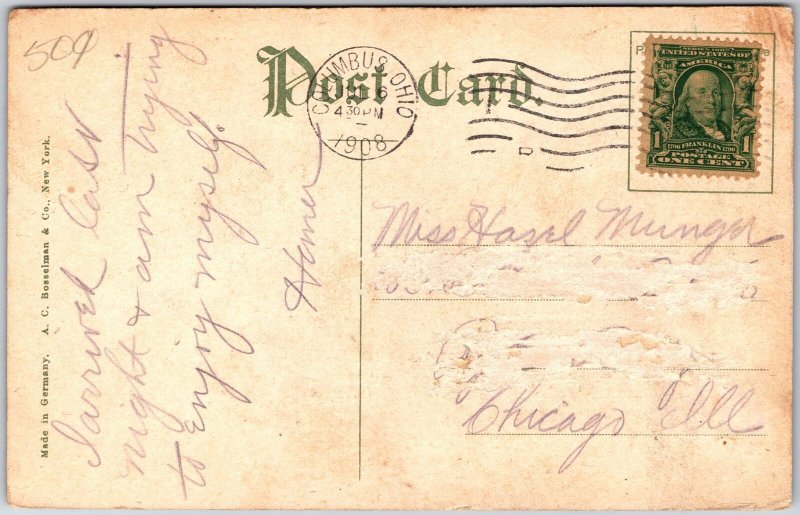 504
Post Card.
COLUMBUS, OHIO
6
4 30 PM
1908
SERIES 1902
UNITED STATES OF
AMERICA
1
1706 FRANKLIN 1790
POSTAGE
ONE CENT
1
Made in Germany. A. C. Bosselman & Co., New York.
I arrived last
night & am trying
to enjoy myself.
Homer
Miss Hazel Munger
Chicago Ill